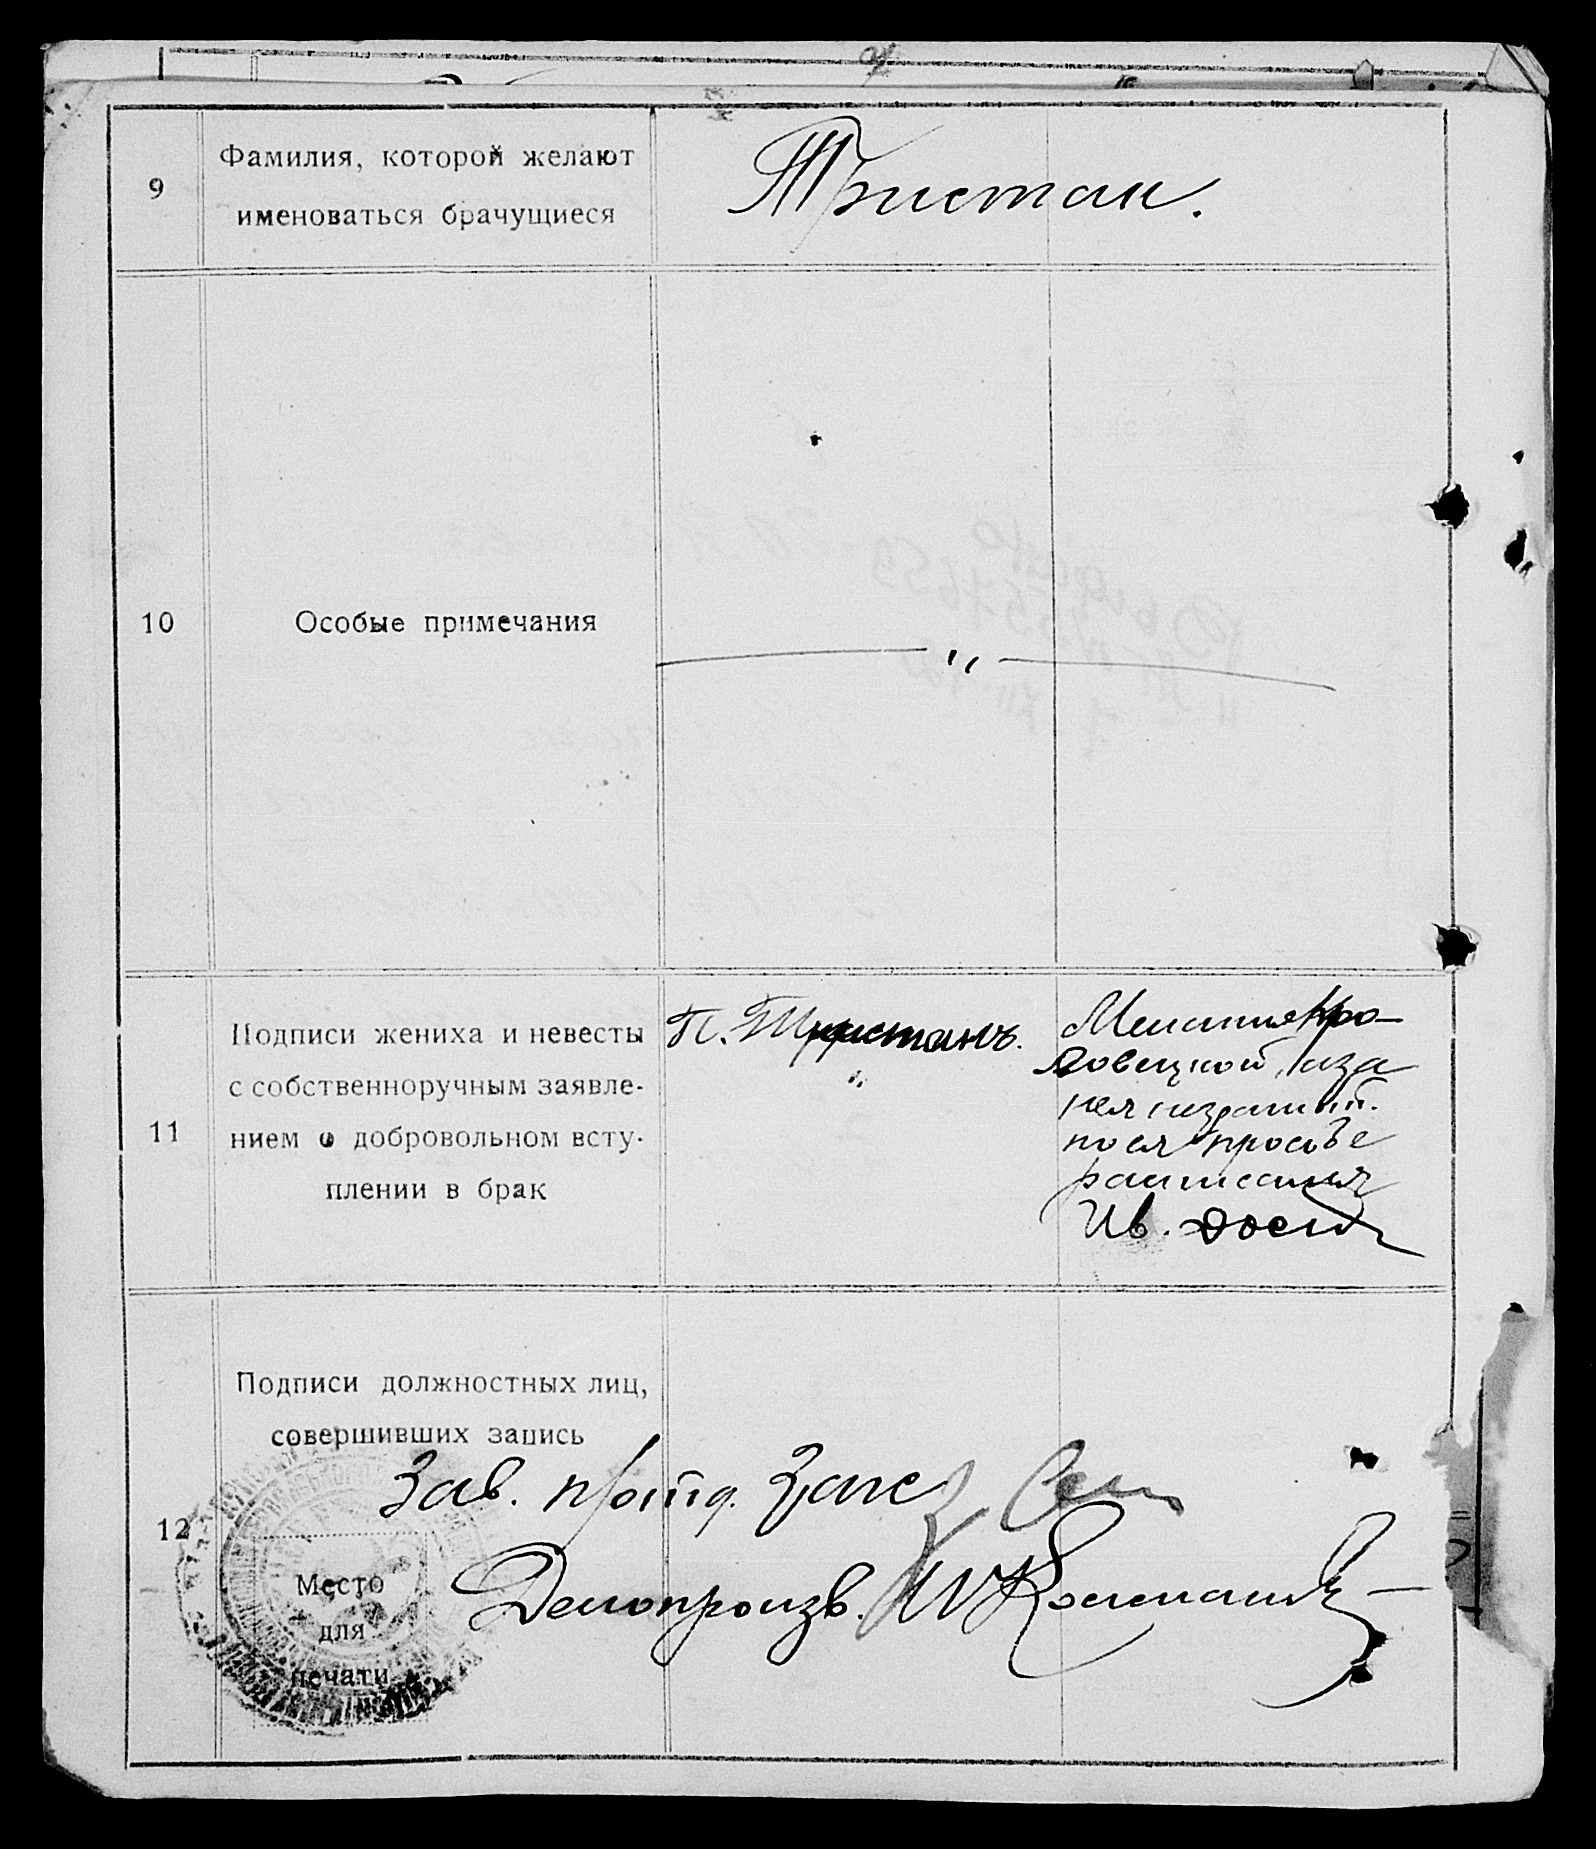 9
Фамилия, которой желают
именоваться брачущиеся
Тристан.
10
Особые примечания
11
Подписи жениха и невесты
с собственноручным заявле-
нием о добровольном всту-
плении в брак
П. Тристанъ.
Мелания Кро-
ловецкой, а за
нея неграмот.
по ея просьбе
Ив.
12
Подписи должностных лиц,
совершивших запись
Зав. п/отд. Загс
Делопроизв.
Место
для
печати